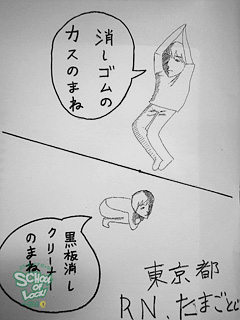 消しゴムの
カスのまね
黒板消し
クリーナー
のまね
SCHOOL
OF
LOCK!
東京都
RN、たまごとじ